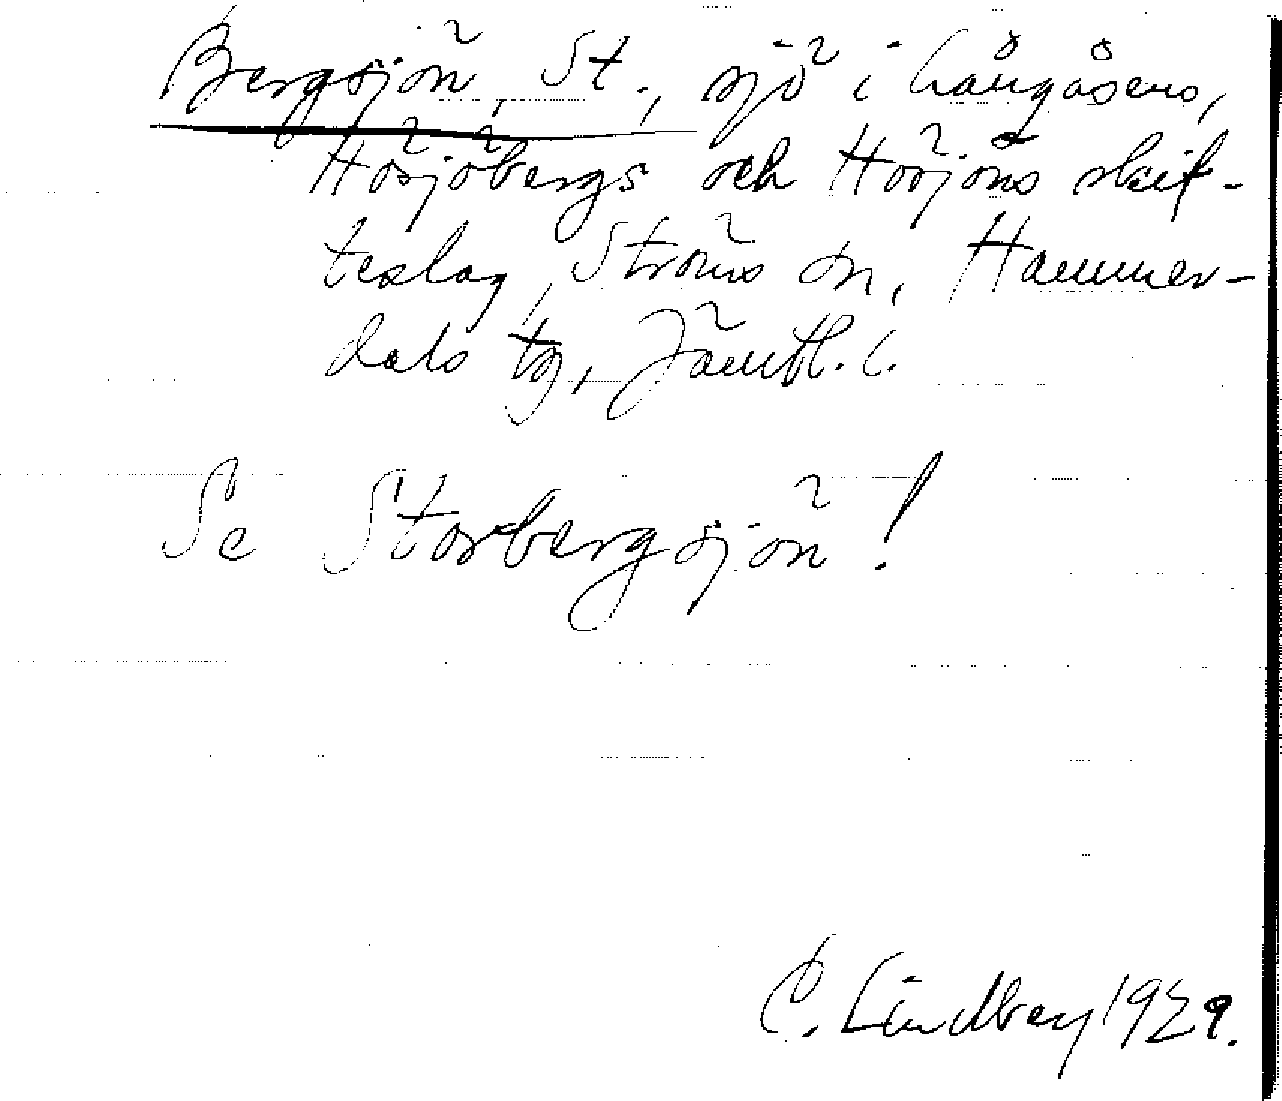 Bergsjön, St., sjö i Långåsens,
Hösjöbergs och Hösjöns skif-
teslag, Ströms sn, Hammer-
dals tg, Jämtl. l.
Se Storbergsjön!
C. Lindberg 1929.